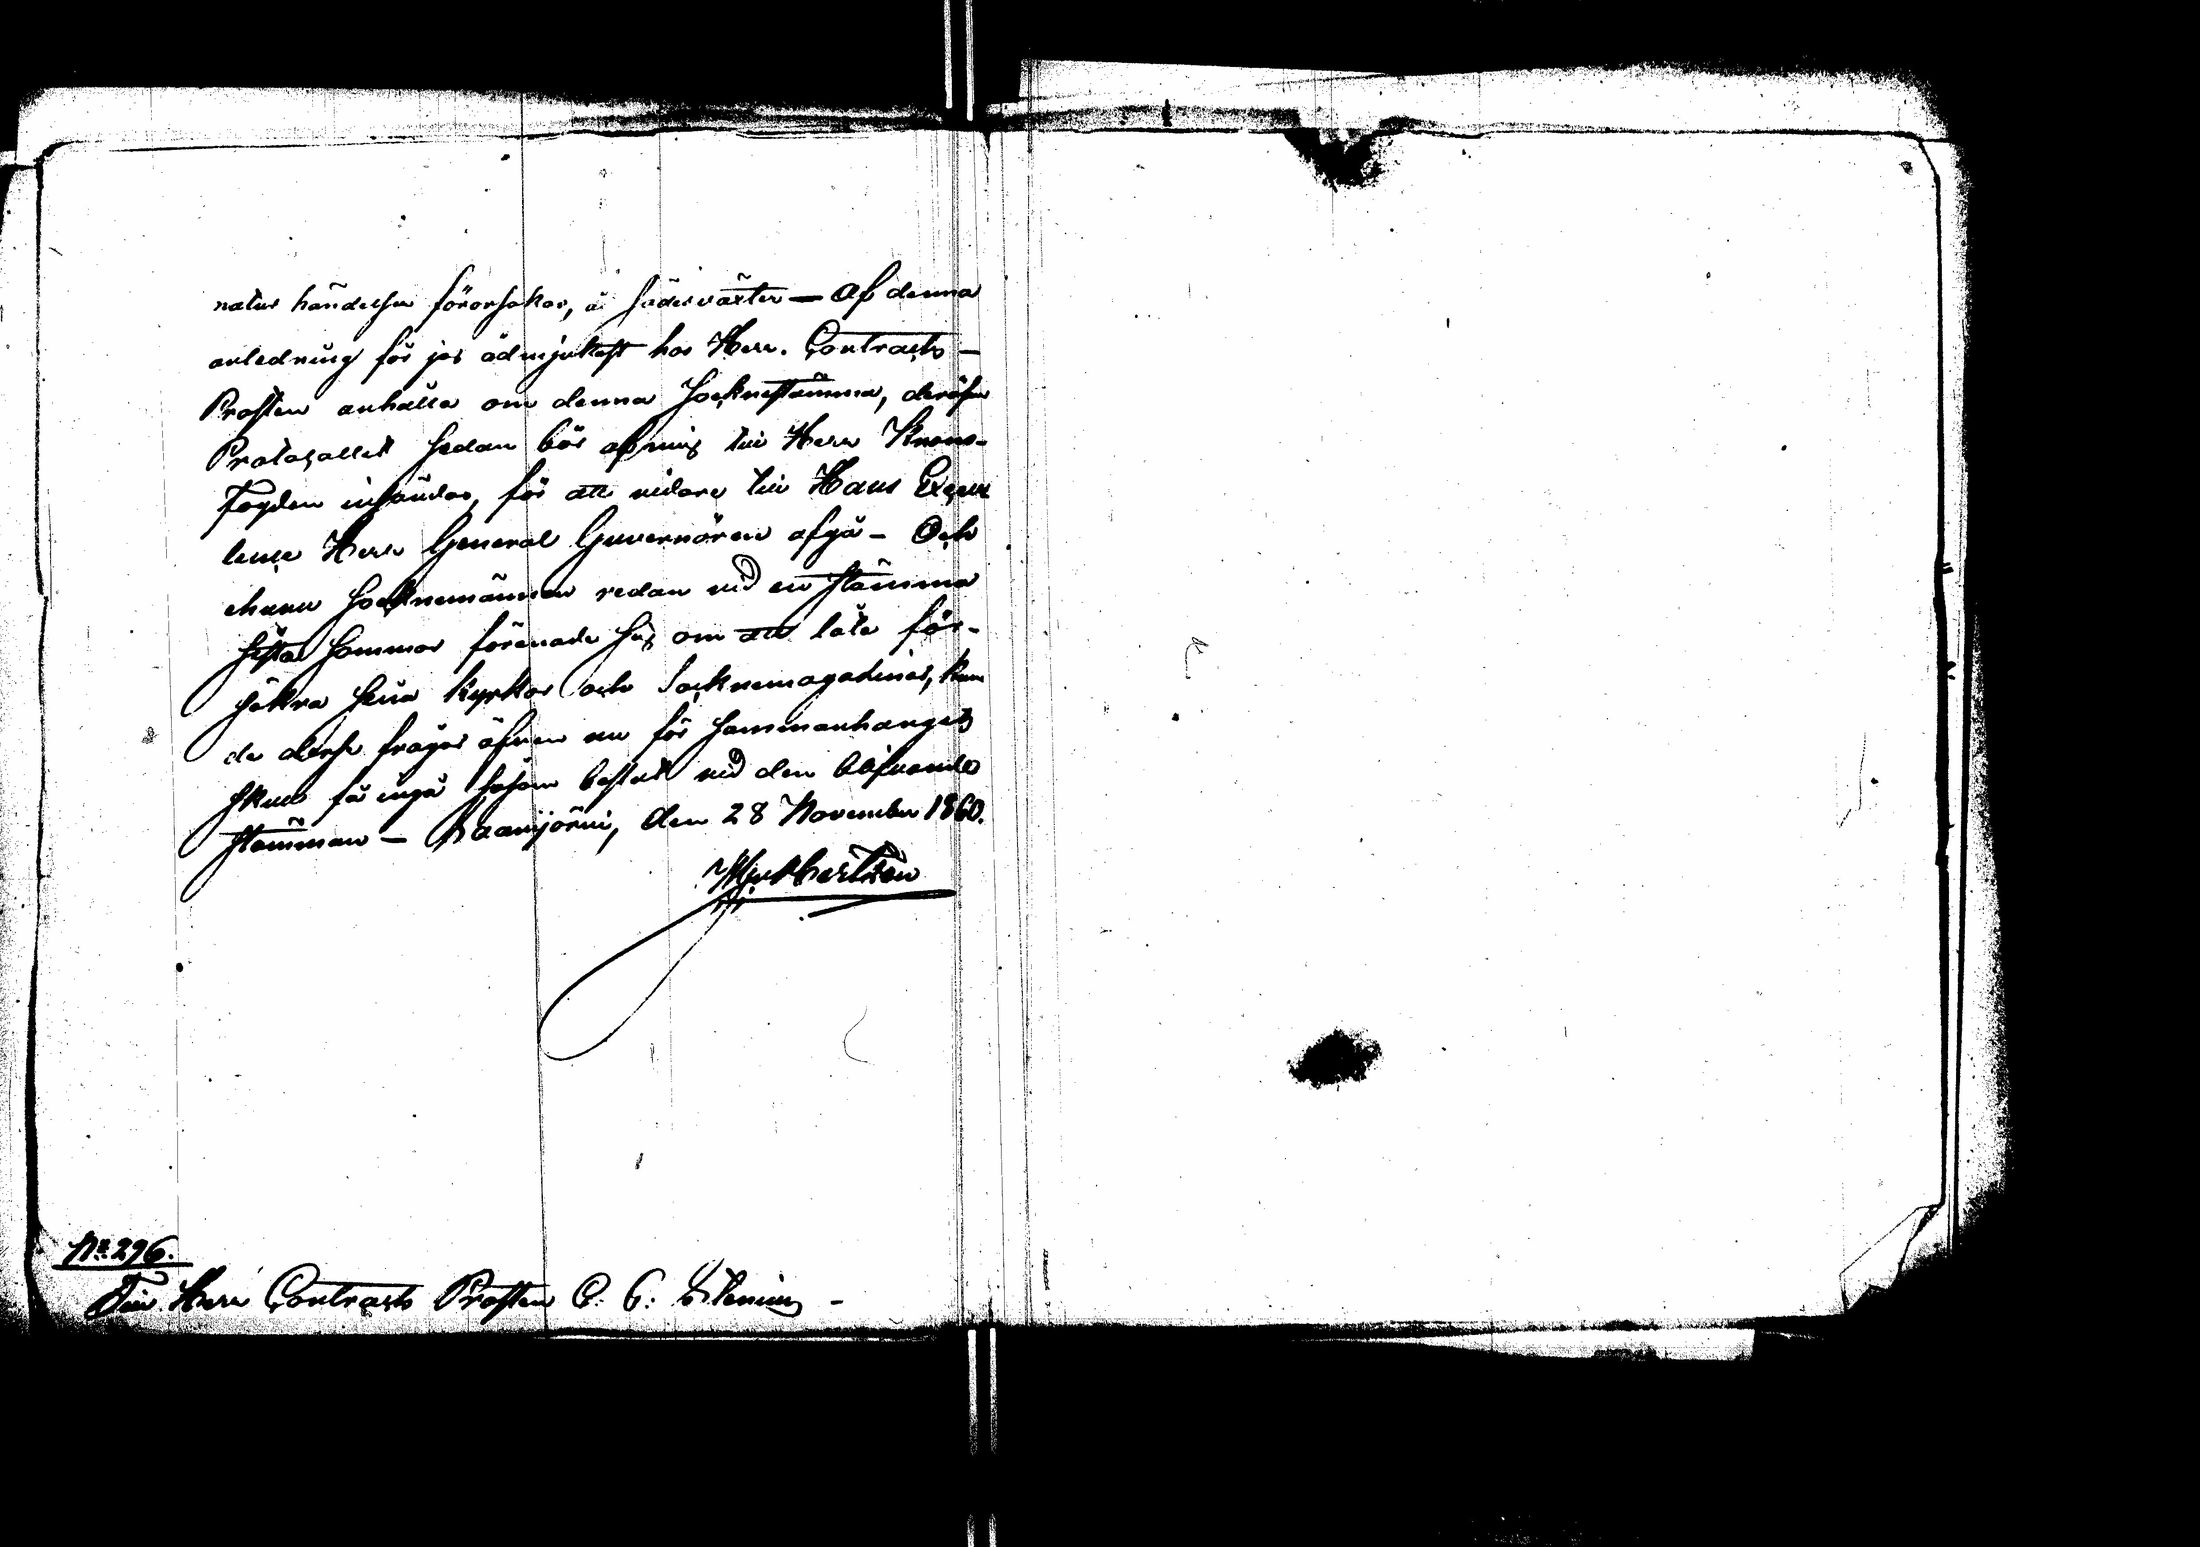 natur händelser förorsakar, å sädesväxter — Af denna
anledning får jag ödmjukast hos Herr. Contracts-
Prosten anhålla om denna Socknestämma, deröfver
Protocollet sedan bör af mig till Herr Krono-
Fogden insändas, för att vidare till Hans Excel
lence Herr General Guvernören afgå — Och
ehuru Socknemännen redan vid en stämma
sista sommar förenade sig om att låta för-
säkra sina Kyrkor och Socknemagasiner, kun
de dessa frågor äfven nu för sammanhangets
skull få ingå såsom beslut vid den blifvande
stämman — Saarijärvi, den 28 November 1860.
No. 296.
Till Herr Contracts Prosten C. G.